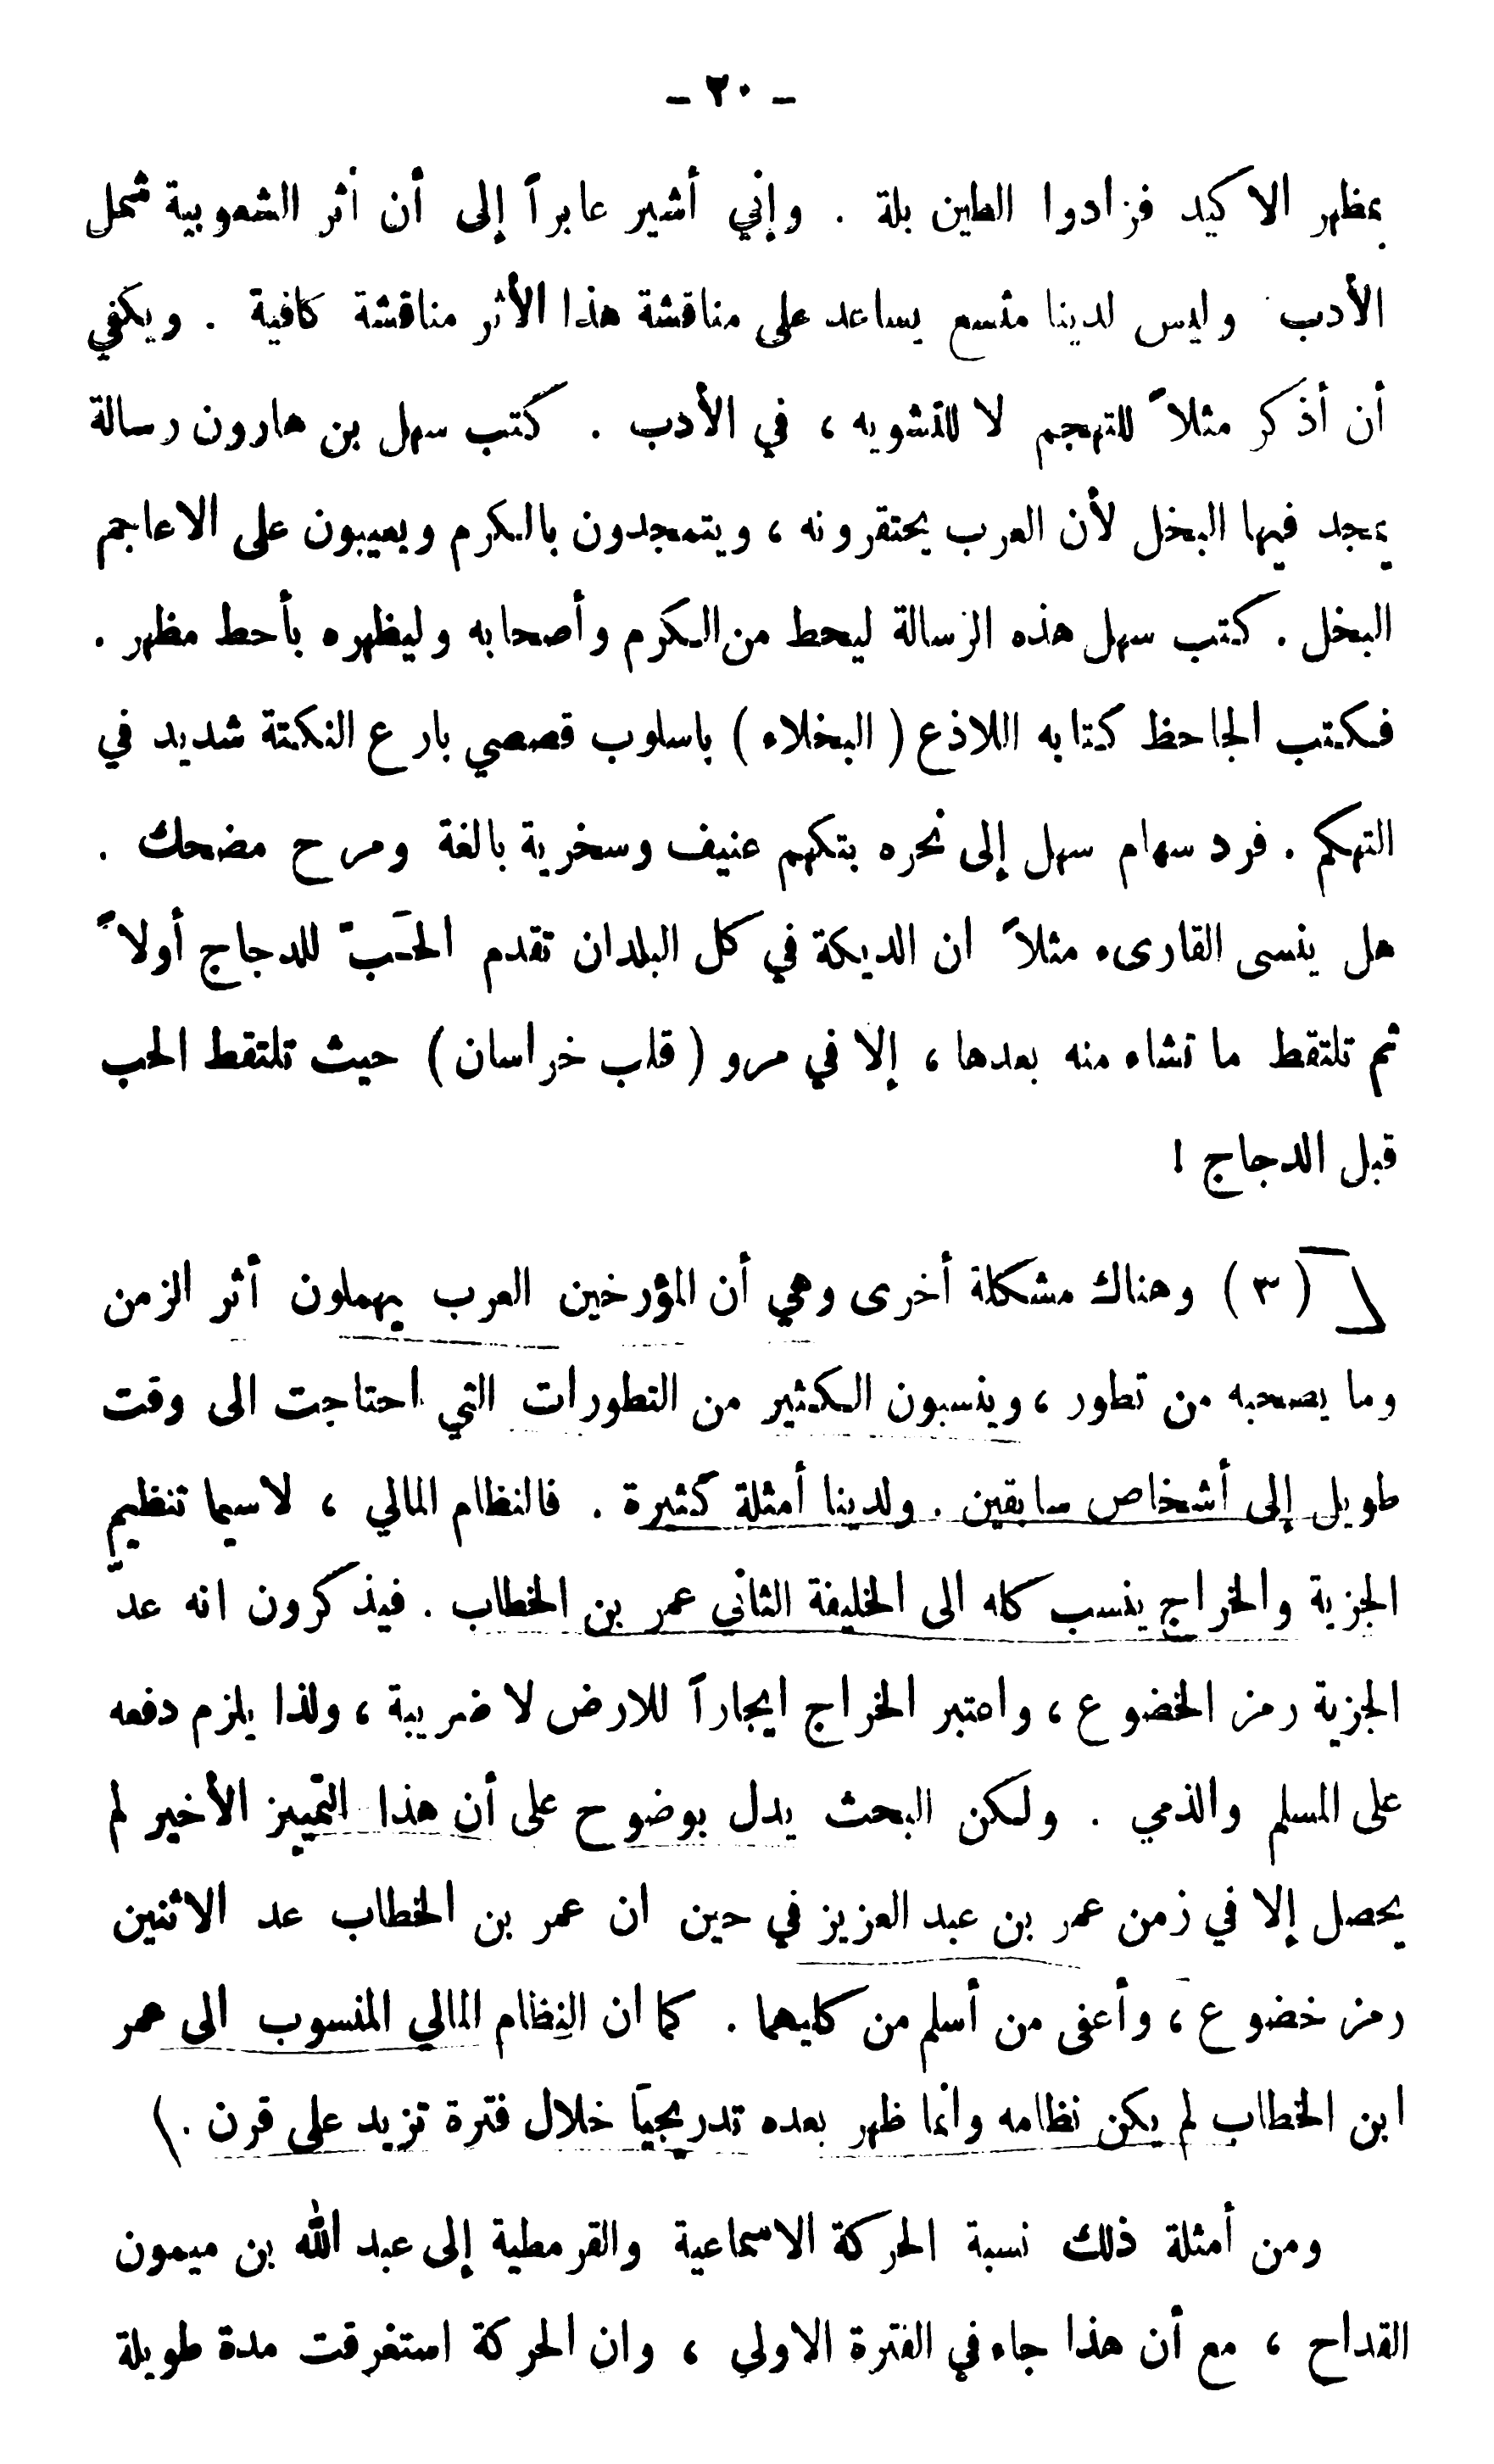 - ٢٠ -
بمظهر الاكيد فزادوا الطين بلة . وإني أشير عابراً إلى أن أثر الشعوبية شمل
الأدب وليس لدينا متسع يساعد على مناقشة هذا الأثر مناقشة كافية . ويكفي
أن أذكر مثلاً للتهجم لا للتشويه ، في الأدب . كتب سهل بن هارون رسالة
يمجد فيها البخل لأن العرب يحتقرونه ، ويتمجدون بالكرم ويعيبون على الاعاجم
البخل . كتب سهل هذه الرسالة ليحط من الكرم وأصحابه وليظهره بأحط مظهر .
فكتب الجاحظ كتابه اللاذع ( البخلاء ) باسلوب قصصي بارع النكتة شديد في
التهكم . فرد سهام سهل إلى نحره بتكهم عنيف وسخرية بالغة ومرح مضحك .
هل ينسى القارىء مثلاً ان الديكة في كل البلدان تقدم الحَبّ للدجاج أولاً
ثم تلتقط ما تشاء منه بعدها ، إلا في مرو ( قلب خراسان ) حيث تلتقط الحب
قبل الدجاج !
( ٣ ) وهناك مشكلة أخرى وهي أن المؤرخين العرب يهملون أثر الزمن
وما يصحبه من تطور ، وينسبون الكثير من التطورات التي احتاجت الى وقت
طويل إلى أشخاص سابقين . ولدينا أمثلة كثيرة . فالنظام المالي ، لاسيما تنظيم
الجزية والخراج ينسب كله الى الخليفة الثاني عمر بن الخطاب . فيذكرون انه عدّ
الجزية رمز الخضوع ، واعتبر الخراج ايجاراً للارض لا ضريبة ، ولذا يلزم دفعه
على المسلم والذمي . ولكن البحث يدل بوضوح على أن هذا التمييز الأخير لم
يحصل إلا في زمن عمر بن عبد العزيز في حين ان عمر بن الخطاب عد الاثنين
رمز خضوع ، وأعفى من أسلم من كليهما . كما ان النظام المالي المنسوب الى عمر
ابن الخطاب لم يكن نظامه وانما ظهر بعده تدريجيًا خلال فترة تزيد على قرن .
ومن أمثلة ذلك نسبة الحركة الاسماعية والقرمطية إلى عبد الله بن ميمون
القداح ، مع أن هذا جاء في الفترة الاولى ، وان الحركة استغرقت مدة طويلة